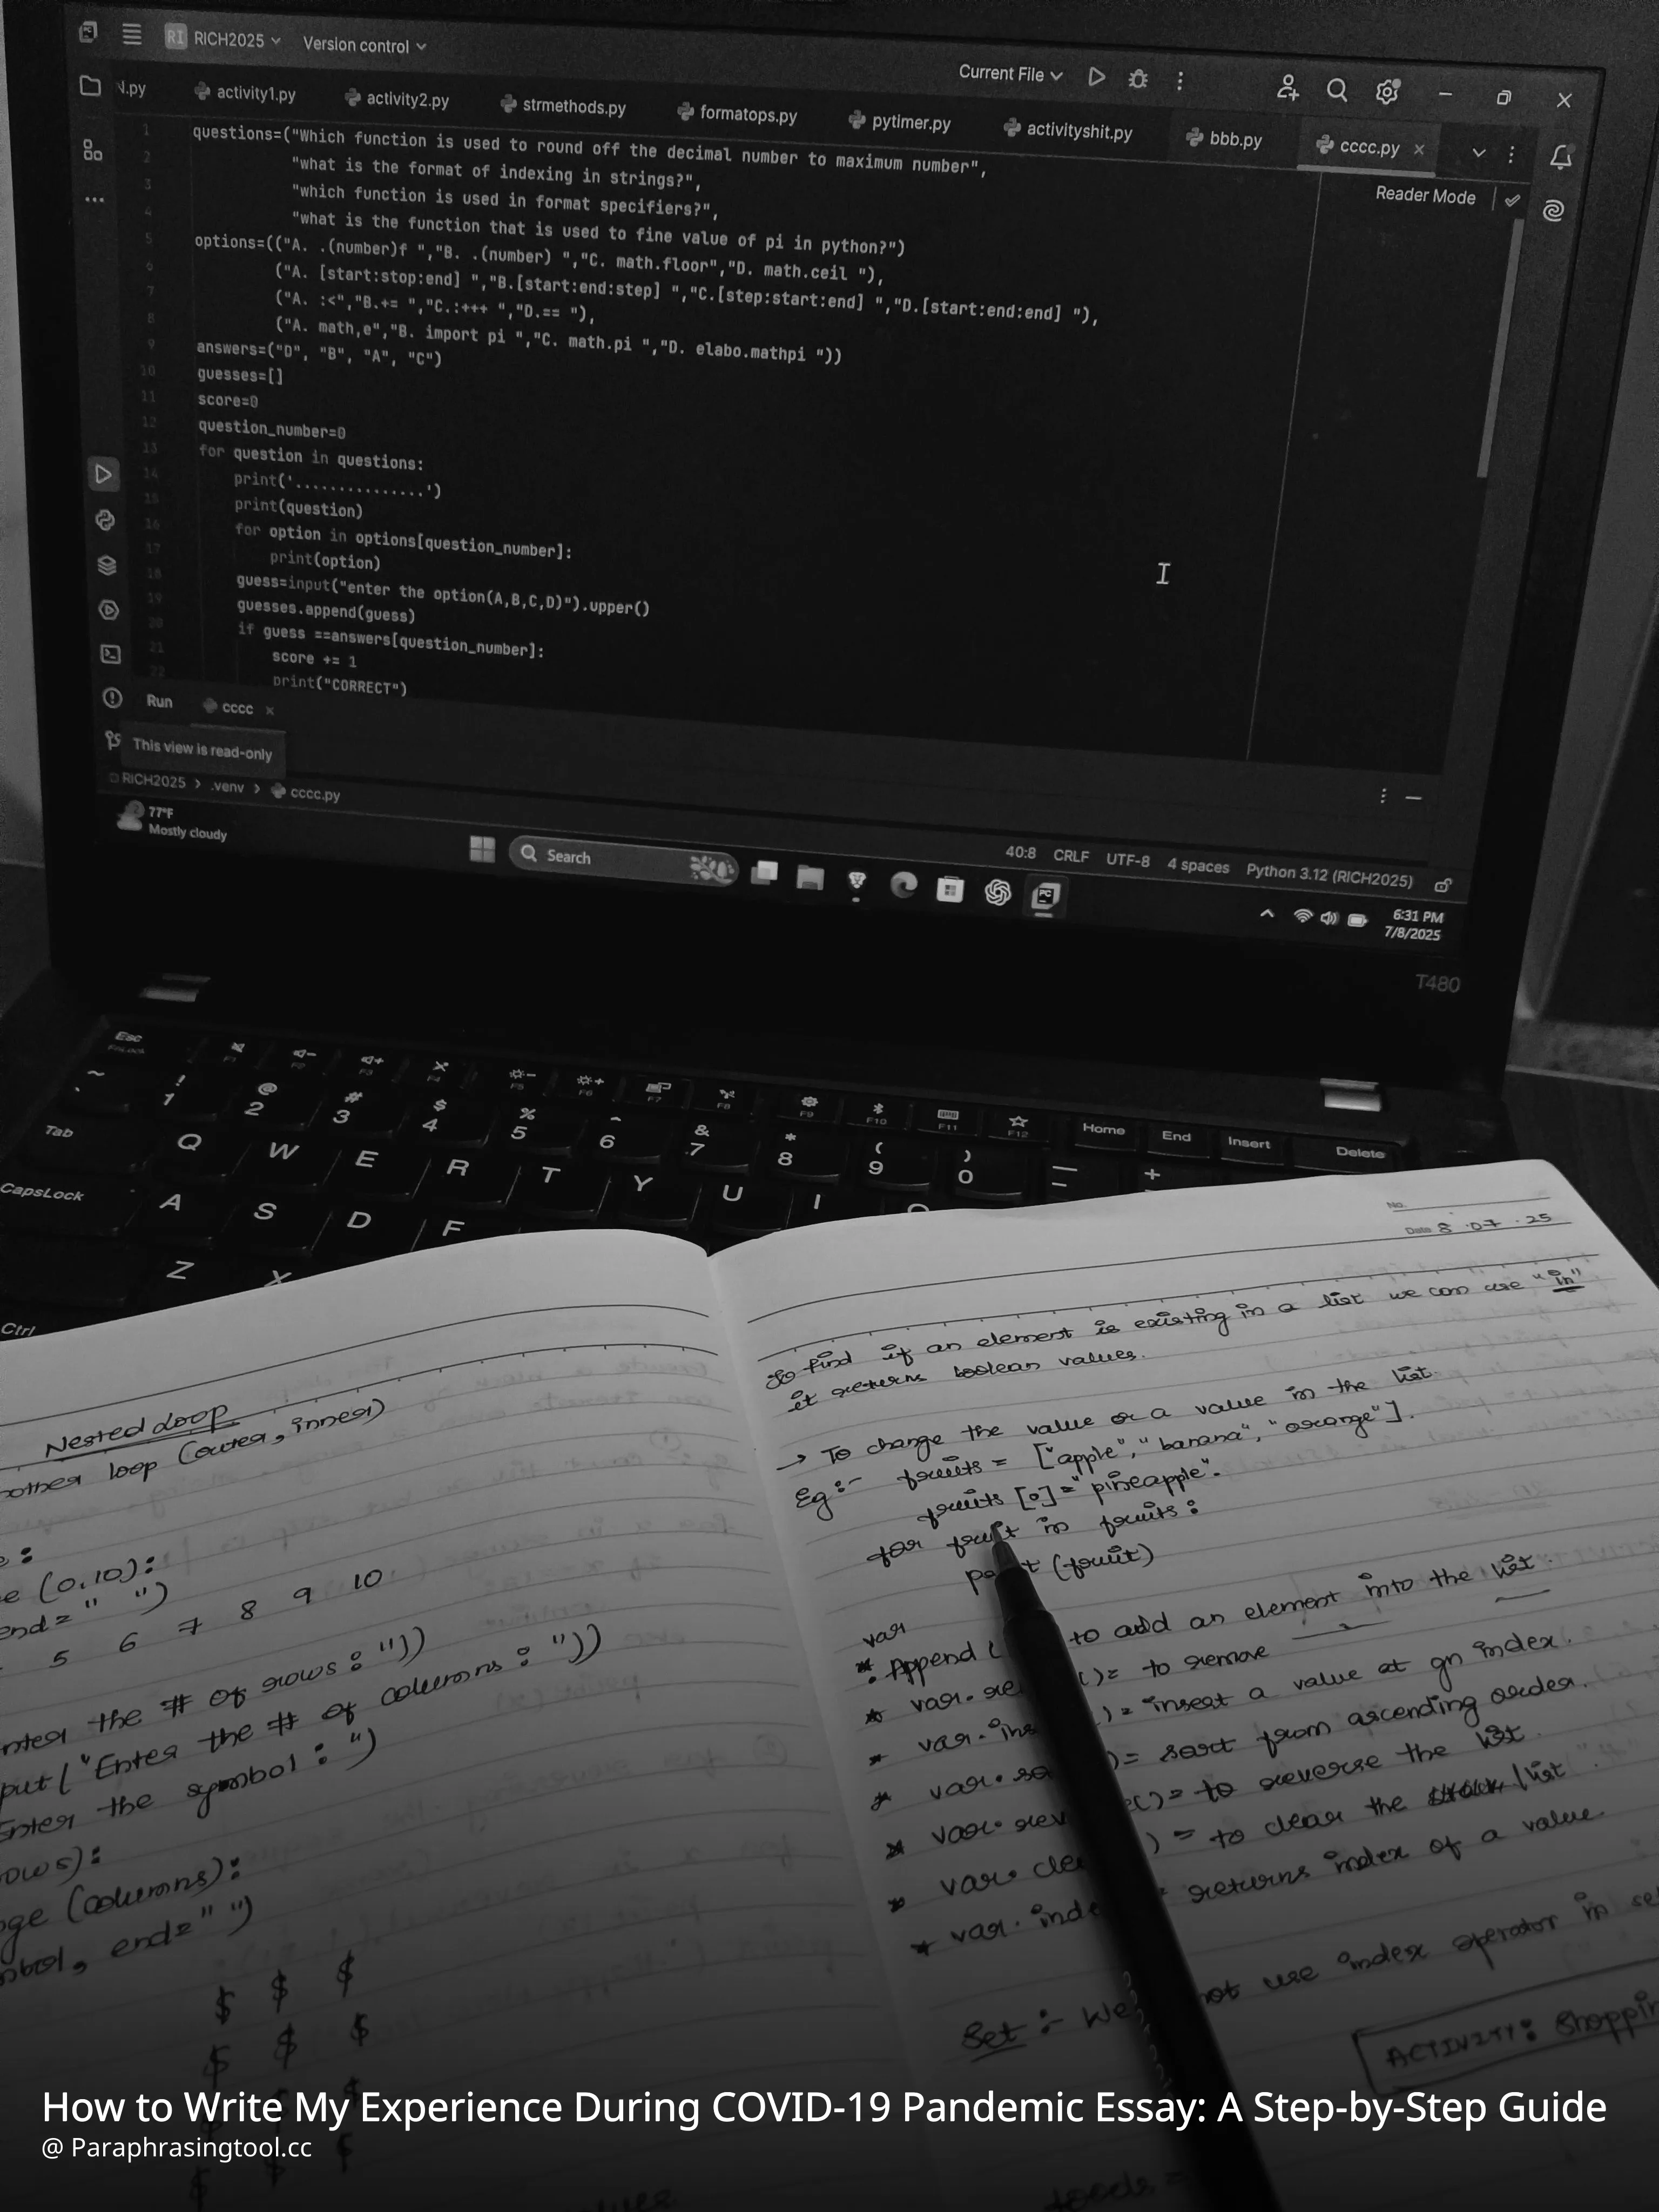 RI RICH2025 Version control Current File
activity1.py activity2.py strmethods.py formatops.py pytimer.py activityshit.py bbb.py cccc.py
Reader Mode
1 questions=("Which function is used to round off the decimal number to maximum number",
2 "what is the format of indexing in strings?",
3 "which function is used in format specifiers?",
4 "what is the function that is used to fine value of pi in python?")
5 options=(("A. .(number)f ","B. .(number) ","C. math.floor","D. math.ceil "),
6 ("A. [start:stop:end] ","B.[start:end:step] ","C.[step:start:end] ","D.[start:end:end] "),
7 ("A. :<","B.+= ","C.:+++ ","D.== "),
8 ("A. math,e","B. import pi ","C. math.pi ","D. elabo.mathpi "))
9 answers=("D", "B", "A", "C")
10 guesses=[]
11 score=0
12 question_number=0
13 for question in questions:
14 print('...............')
15 print(question)
16 for option in options[question_number]:
17 print(option)
18 guess=input("enter the option(A,B,C,D)").upper()
19 guesses.append(guess)
20 if guess ==answers[question_number]:
21 score += 1
22 print("CORRECT")
Run cccc
This view is read-only
RICH2025 > .venv > cccc.py
40:8 CRLF UTF-8 4 spaces Python 3.12 (RICH2025)
77°F
Mostly cloudy
Search
6:31 PM
7/8/2025
T480
Esc F1 F2 F3 F4 F5 F6 F7 F8 F9 F10 F11 F12 Home End Insert Delete
~ ! 1 @ 2 # 3 $ 4 % 5 ^ 6 & 7 * 8 ( 9 ) 0 — + =
Tab Q W E R T Y U I
CapsLock A S D F
Z X
Ctrl
Nested Loop
loop (outer, inner)
(0,10):
end=" ")
5 6 7 8 9 10
the # of rows : "))
("Enter the # of columns : "))
Enter the symbol : ")
(columns):
end=" ")
$ $ $
$ $ $
No.
Date 8 .07 .25
To find if an element is existing in a list we can use "in"
it returns boolean values.
→ To change the value or a value in the list.
Eg:- fruits = ["apple", "banana", "orange"].
fruits [0]="pineapple".
for fruit in fruits :
(fruit)
var
* Append ( to add an element into the list.
* var. ()= to remove
* var. )= insert a value at gn index.
* var. )= sort from ascending order.
* var. ()= to reverse the list.
* var. ) = to clear the /list.
* var. returns index of a value.
Set :- We not use index operator in
ACTIVITY:
How to Write My Experience During COVID-19 Pandemic Essay: A Step-by-Step Guide
@ Paraphrasingtool.cc